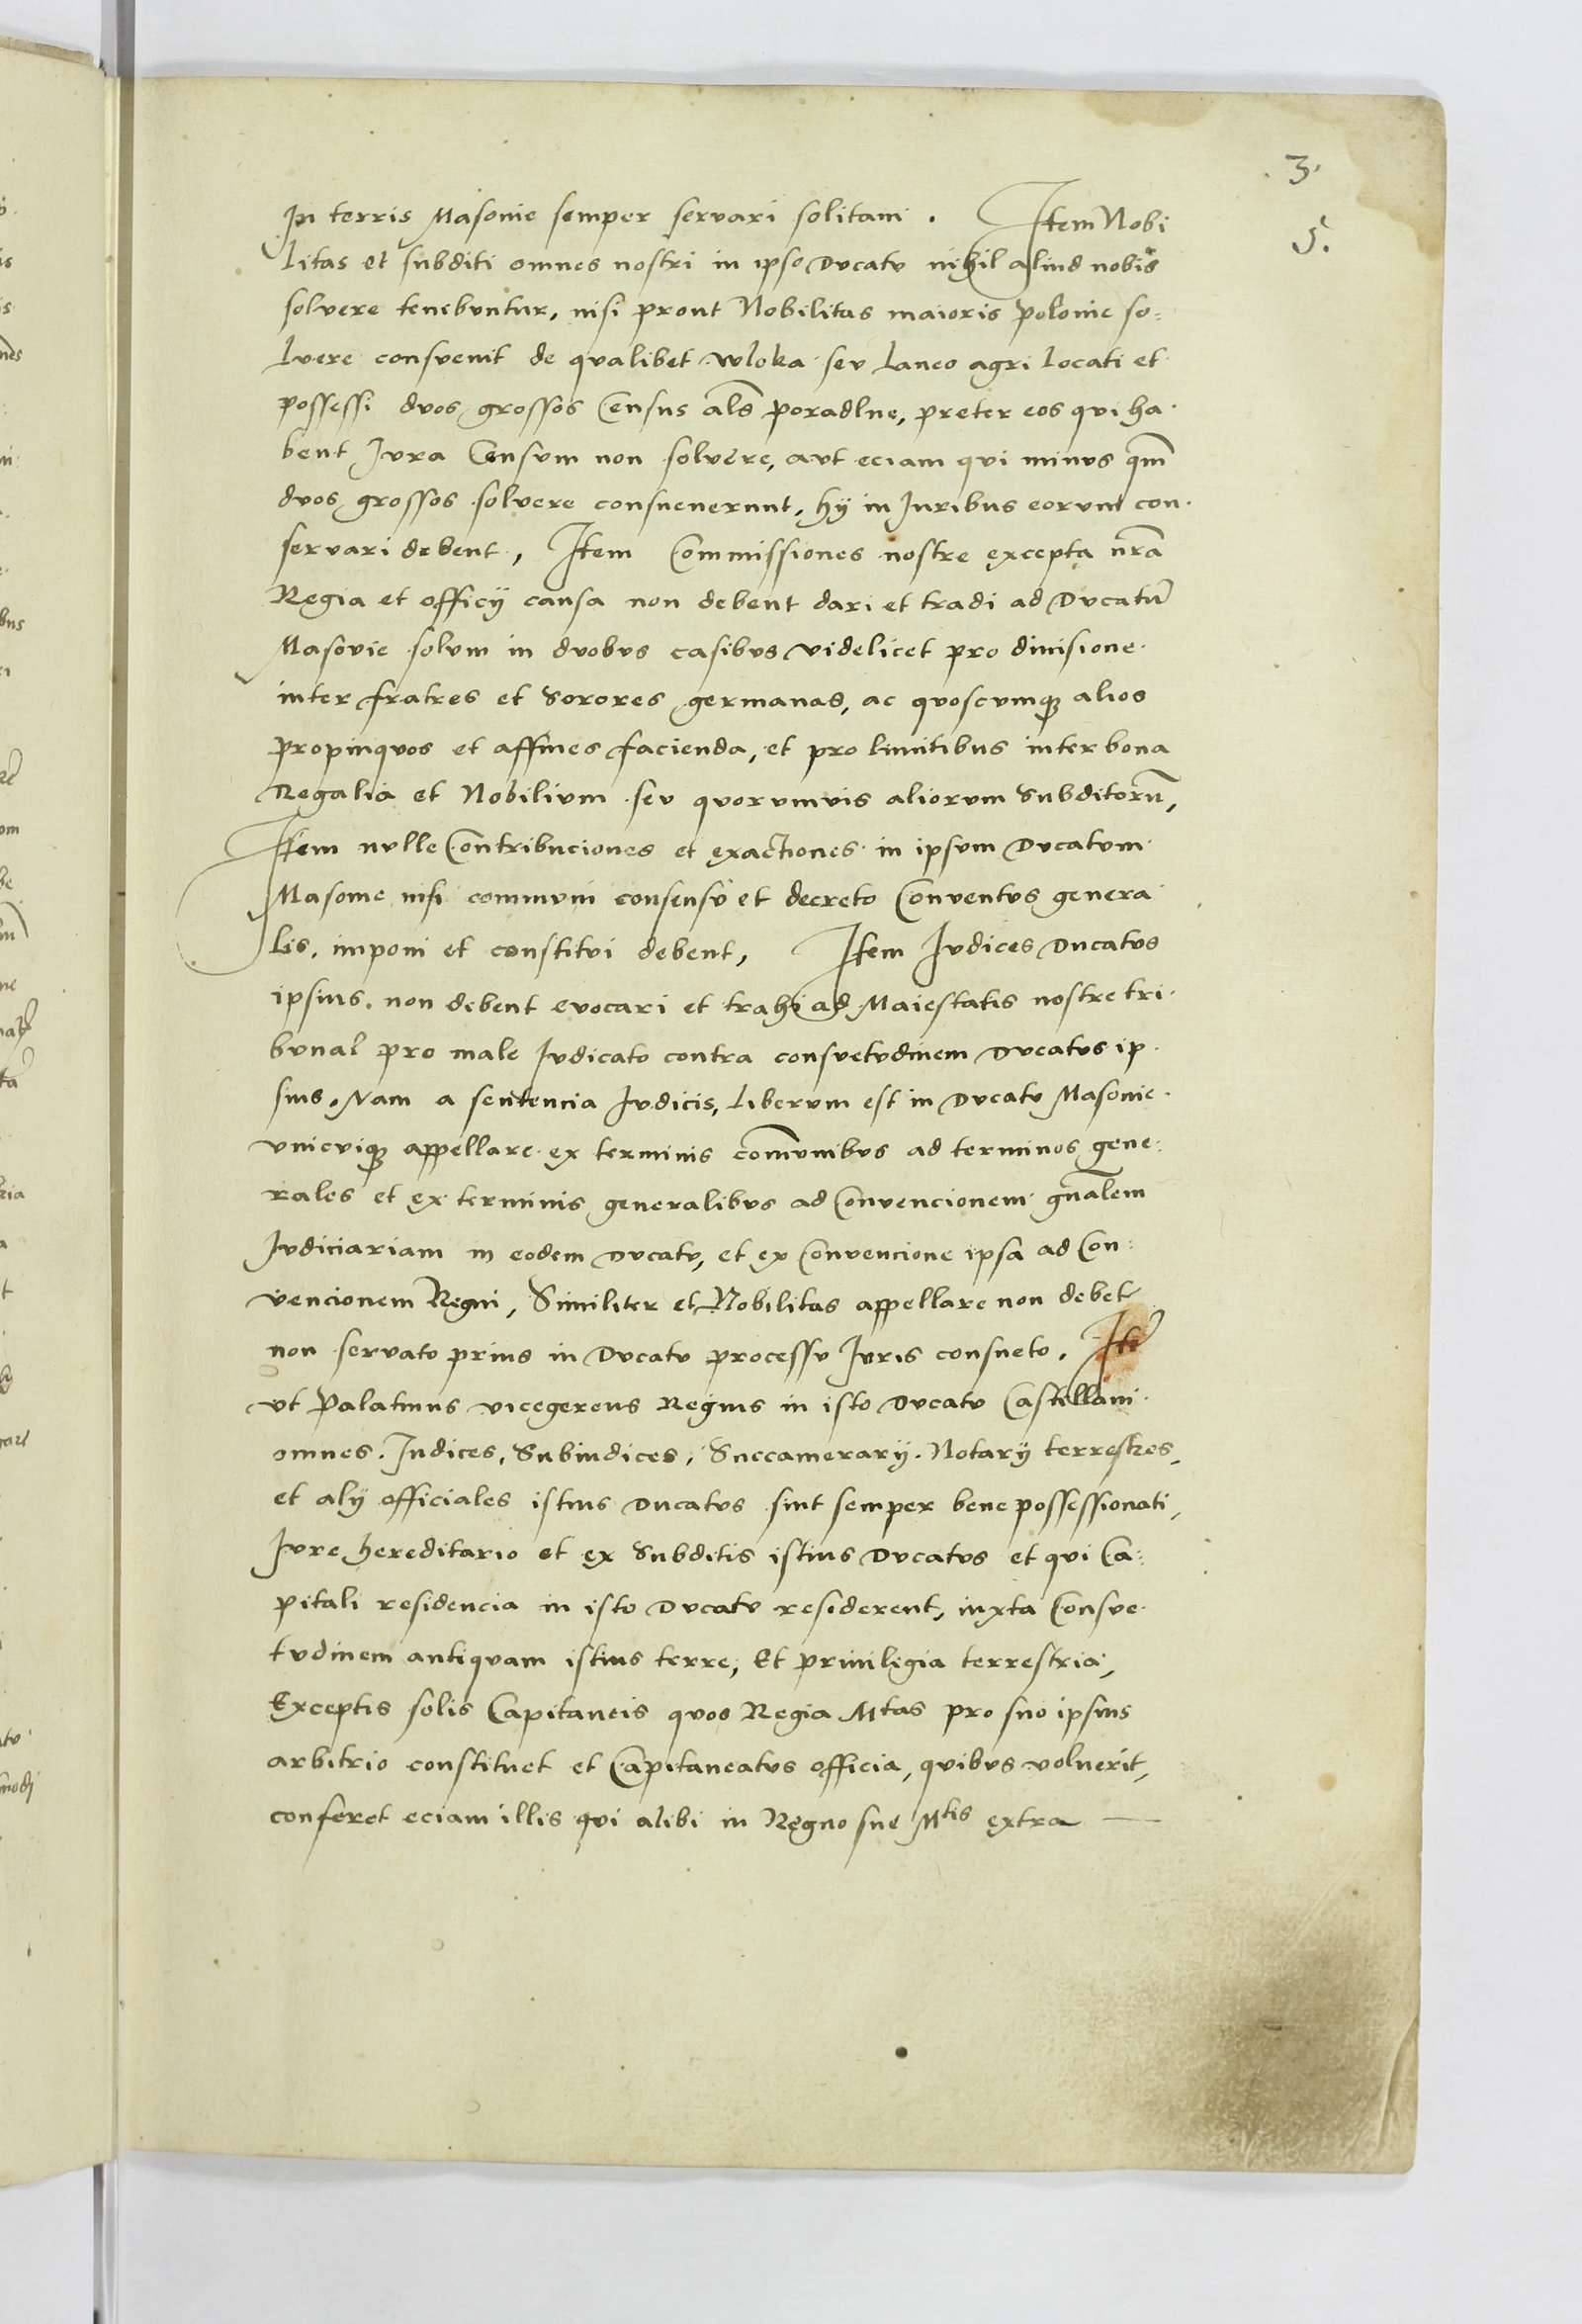 .3.
5.
In terris Masovie semper servari solitam. Item Nobi
litas et subditi omnes nostri in ipso Ducatu nihil aliud nobis
solvere tenebuntur, nisi prout Nobilitas maioris polonie so:
lvere consvevit de qvalibet wloka sev Laneo agri Locati et
possessi dvos grossos Census als poradlne, preter eos qvi ha.
bent Jvra Censvm non solvere, avt eciam qvi minvs qm
dvos grossos solvere consveverunt, hÿ in Juribus eorvm con.
servari debent, Item Commissiones nostre excepta nra
Regia et officÿ causa non debent dari et tradi ad Dvcatu
Masovie solvm in dvobvs casibvs videlicet pro divisione
inter fratres et Sorores germanas, ac qvoscvmqz alios
propinqvos et affines facienda, et pro limitibus inter bona
Regalia et Nobilivm sev qvorvmvis aliorvm Subditoru,
Item nvlle Contribuciones et exactiones in ipsvm Dvcatvm
Masovie nisi commvni consensv et decreto Conventvs genera
lis, imponi et constitvi debent, Item Jvdices Ducatvs
ipsius, non debent evocari et trahi ad Maiestatis nostre tri
bvnal pro male Jvdicato contra consvetvdinem Dvcatvs ip.
sius, Nam a sentencia Jvdicis, Liberum est in Dvcatv Masovie
vnicviqz appellare ex terminis comvnibvs ad terminos gene:
rales et ex terminis generalibvs ad Convencionem gnalem
Jvdiciariam in eodem Dvcatv, et ex Convencione ipsa ad Con:
vencionem Regni, Similiter et Nobilitas appellare non debet
non servato prius in Dvcatv processv Jvris consueto, Ite
vt Palatinus vicegerens Regius in isto Dvcatv Castellani
omnes, Judices, Subiudices, Succamerarÿ, Notarÿ terrestres,
et alÿ officiales istius Ducatvs sint semper bene possessionati,
Jvre hereditario et ex Subditis istius Dvcatvs et qvi Ca:
pitali residencia in isto Dvcatv residerent, iuxta Consve
tvdinem antiqvam istius terre, Et privilegia terrestria,
Exceptis solis Capitaneis qvos Regia Mtas pro suo ipsius
arbitrio constituet et Capitaneatvs officia, qvibvs volverit,
conferet eciam illis qvi alibi in Regno sue Mtis extra